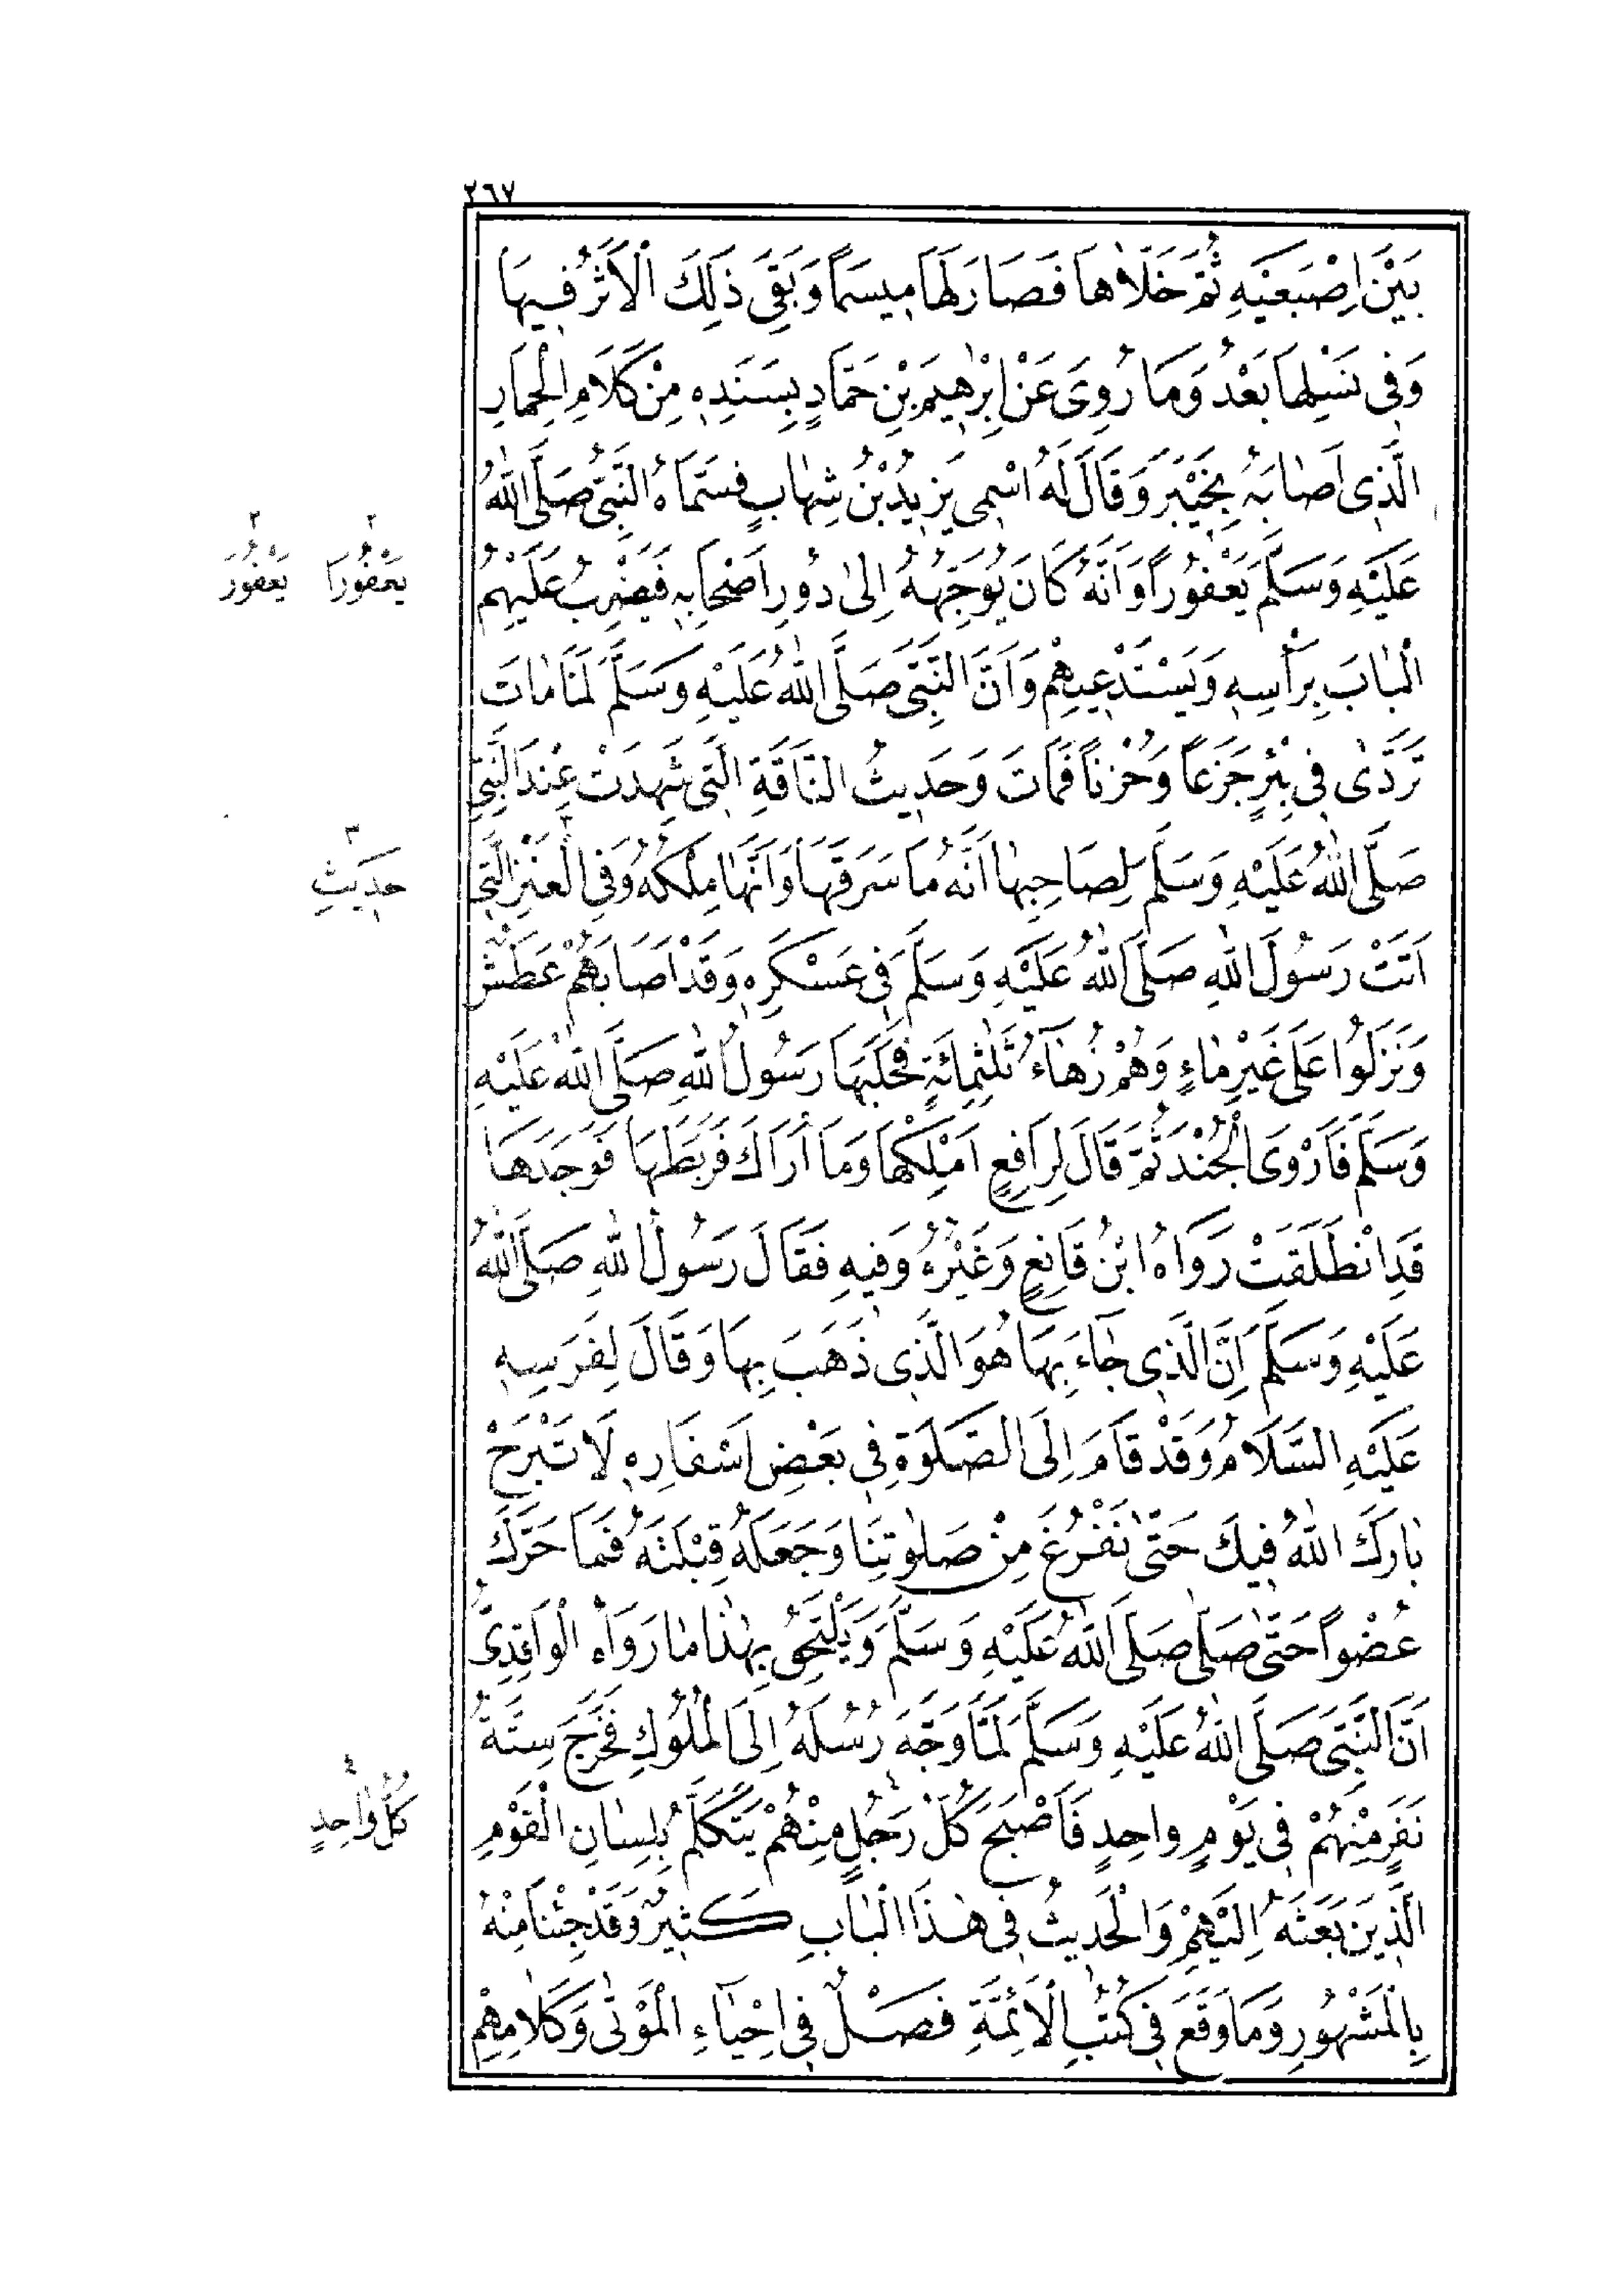 ٢٦٧
بَيْنَ اِصْبَعَيْهِ ثُمَّ خَلَّاهَا فَصَارَ لَهَا مِيسَمًا وَبَقِيَ ذٰلِكَ الْاَثَرُ فِيهَا
وَفِى نَسْلِهَا بَعْدُ وَمَا رُوِىَ عَنْ اِبْرٰهِيمَ بْنِ حَمَّادٍ بِسَنَدِهِ مِنْ كَلَامِ الْحِمَارِ
الَّذِى اَصَابَهُ بِخَيْبَرَ وَقَالَ لَهُ اسْمِى يَزِيدُ بْنُ شِهَابٍ فَسَمَّاهُ النَّبِىُّ صَلَّى اللّٰهُ
عَلَيْهِ وَسَلَّمَ يَعْفُورًا وَاَنَّهُ كَانَ يُوَجِّهُهُ اِلٰى دُورِ اَصْحَابِهِ فَيَضْرِبُ عَلَيْهِمُ
يَحْفُورًا ٢ يَعْفُورُ ٢
الْبَابَ بِرَأْسِهِ وَيَسْتَدْعِيهِمْ وَاَنَّ النَّبِىَّ صَلَّى اللّٰهُ عَلَيْهِ وَسَلَّمَ لَمَّا مَاتَ
تَرَدّٰى فِى بِئْرٍ جَزَعًا وَحُزْنًا فَمَاتَ وَحَدِيثُ النَّاقَةِ الَّتِى شَهِدَتْ عِنْدَ النَّبِىِّ
صَلَّى اللّٰهُ عَلَيْهِ وَسَلَّمَ لِصَاحِبِهَا اَنَّهُ مَا سَرَقَهَا وَاَنَّهَا مِلْكُهُ وَفِى الْعَنْزِ الَّتِى
حَدِيثِ ٣
اَتَتْ رَسُولَ اللّٰهِ صَلَّى اللّٰهُ عَلَيْهِ وَسَلَّمَ فِى عَسْكَرِهِ وَقَدْ اَصَابَهُمْ عَطَشٌ
وَنَزَلُوا عَلَى غَيْرِ مَاءٍ وَهُمْ زُهَاءُ ثَلٰثِمِائَةٍ فَحَلَبَهَا رَسُولُ اللّٰهِ صَلَّى اللّٰهُ عَلَيْهِ
وَسَلَّمَ فَاَرْوَى الْجُنْدَ ثُمَّ قَالَ لِرَافِعٍ اَمْلِكْهَا وَمَا أَرَاكَ فَرَبَطَهَا فَوَجَدَهَا
قَدِ انْطَلَقَتْ رَوَاهُ ابْنُ قَانِعٍ وَغَيْرُهُ وَفِيهِ فَقَالَ رَسُولُ اللّٰهِ صَلَّى اللّٰهُ
عَلَيْهِ وَسَلَّمَ اِنَّ الَّذِى جَاءَ بِهَا هُوَ الَّذِى ذَهَبَ بِهَا وَقَالَ لِفَرَسِهِ
عَلَيْهِ السَّلَامُ وَقَدْ قَامَ اِلَى الصَّلٰوةِ فِى بَعْضِ اَسْفَارِهِ لَا تَبْرَحْ
بَارَكَ اللّٰهُ فِيكَ حَتّٰى نَفْرُغَ مِنْ صَلٰوتِنَا وَجَعَلَهُ قِبْلَتَهُ فَمَا حَرَّكَ
عُضْوًا حَتّٰى صَلَّى صَلَّى اللّٰهُ عَلَيْهِ وَسَلَّمَ وَيَلْتَحِقُ بِهٰذَا مَا رَوَاهُ الْوَاقِدِىُّ
اَنَّ النَّبِىَّ صَلَّى اللّٰهُ عَلَيْهِ وَسَلَّمَ لَمَّا وَجَّهَ رُسُلَهُ اِلَى الْمُلُوكِ فَخَرَجَ سِتَّةُ
نَفَرٍ مِنْهُمْ فِى يَوْمٍ وَاحِدٍ فَاَصْبَحَ كُلُّ رَجُلٍ مِنْهُمْ يَتَكَلَّمُ بِلِسَانِ الْقَوْمِ
كُلُّ وَاحِدٍ ٤
الَّذِينَ بَعَثَهُ اِلَيْهِمْ وَالْحَدِيثُ فِى هٰذَا الْبَابِ كَثِيرٌ وَقَدْ جِئْنَا مِنْهُ
بِالْمَشْهُورِ وَمَا وَقَعَ فِى كُتُبِ الْاَئِمَّةِ فَصْلٌ فِى اِحْيَاءِ الْمَوْتٰى وَكَلَامِهِمْ